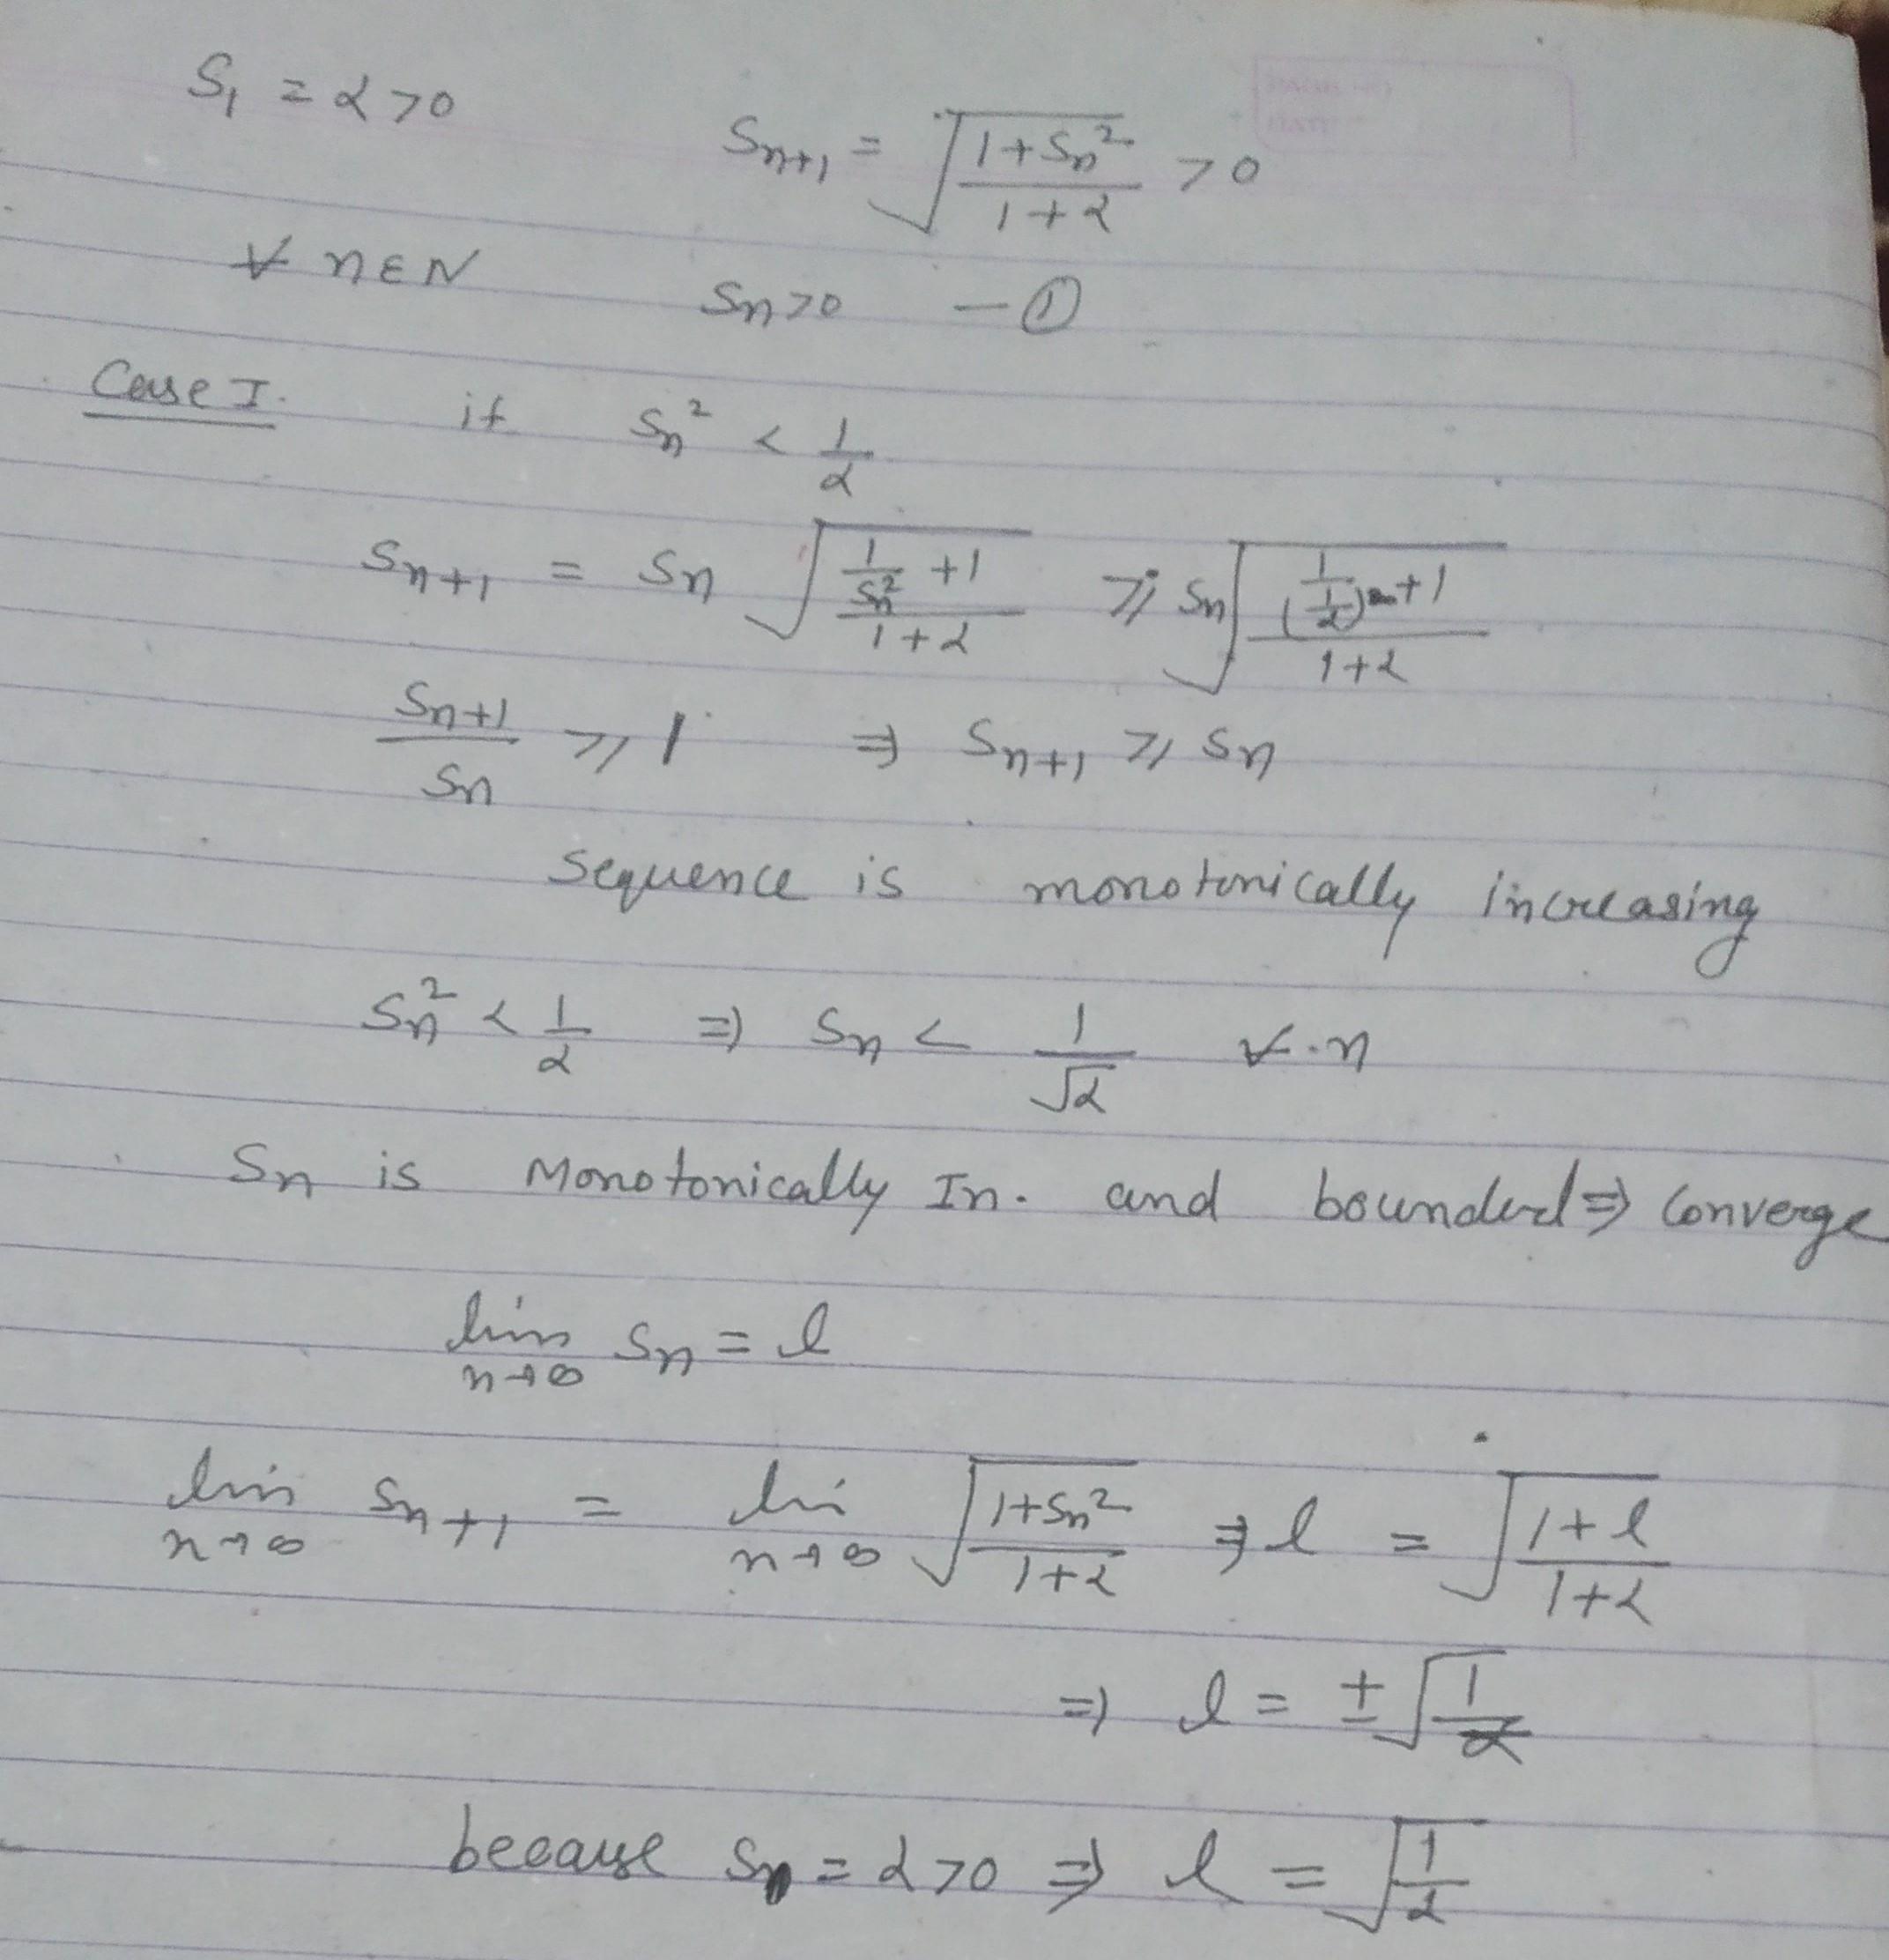 S₁ = α > 0
Sₙ₊₁ = √((1+Sₙ²)/(1+α)) > 0
∀ n ∈ N Sₙ > 0 — ①
Case I. if Sₙ² < 1/α
Sₙ₊₁ = Sₙ √((1/Sₙ² + 1)/(1+α)) ⩾ Sₙ √((1/(1/α) + 1)/(1+α))
Sₙ₊₁/Sₙ ⩾ 1 ⇒ Sₙ₊₁ ⩾ Sₙ
Sequence is monotonically increasing
Sₙ² < 1/α ⇒ Sₙ < 1/√α ∀ n
Sₙ is Monotonically In. and bounded ⇒ Converge
lim n→∞ Sₙ = l
lim n→∞ Sₙ₊₁ = lim n→∞ √((1+Sₙ²)/(1+α)) ⇒ l = √((1+l)/(1+α))
⇒ l = ± √(1/α)
because Sₙ = α > 0 ⇒ l = √(1/α)